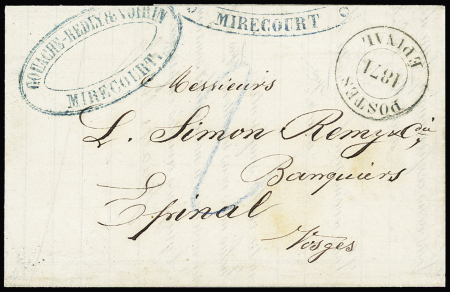 MIRECOURT S
GOUACHE-REDIN & VOIRIN
MIRECOURT.
POSTES
1871
EPINAL
Messieurs
L. Simon Remy & Cie
Banquiers
Epinal
Vosges